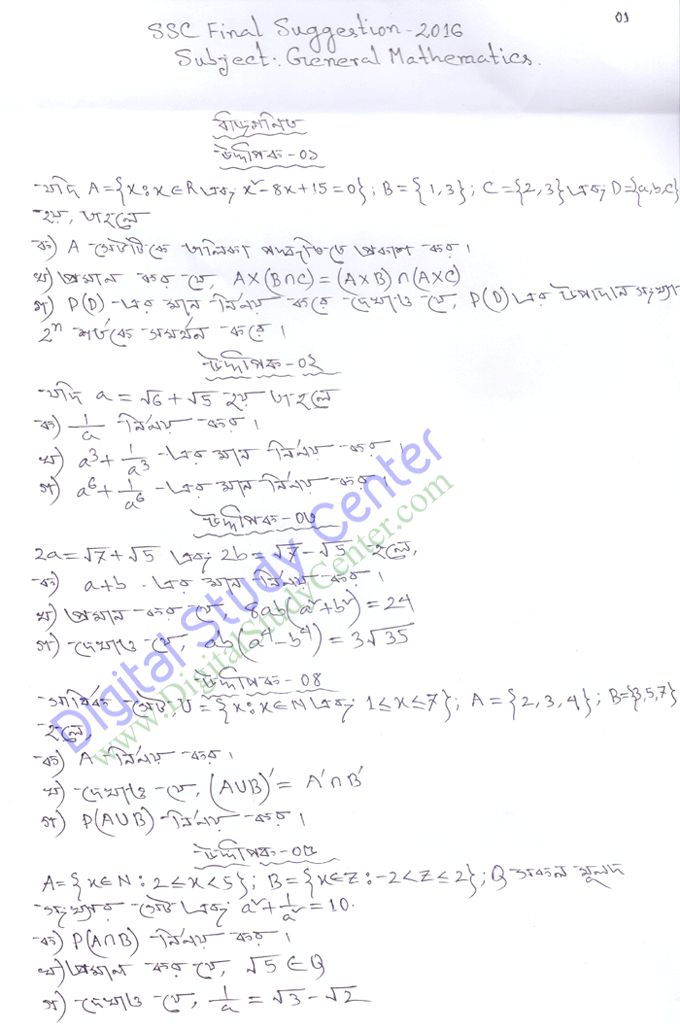 01
SSC Final Suggestion-2016
Subject: General Mathematics.
বীজগনিত
উদ্দীপক-০১
যদি A={x:x∈R এবং x²-8x+15=0}; B={1,3}; C={2,3} এবং D={a,b,c}
হয়, তাহলে
ক) A সেটটিকে তালিকা পদ্ধতিতে প্রকাশ কর।
খ) প্রমান কর যে, A×(B∩C)=(A×B)∩(A×C)
গ) P(D)-এর মান নির্নয় করে দেখাও যে, P(D) এর উপাদান সংখ্যা
2ⁿ শর্তকে সমর্থন করে।
উদ্দীপক-০২
যদি a=√6+√5 হয় তাহলে
ক) 1/a নির্নয় কর।
খ) a³+1/a³-এর মান নির্নয় কর।
গ) a⁶+1/a⁶-এর মান নির্নয় কর।
উদ্দীপক-০৩
2a=√7+√5 এবং 2b=√7-√5 হলে,
ক) a+b-এর মান নির্নয় কর।
খ) প্রমান কর যে, 8ab(a²+b²)=24
গ) দেখাও যে, ab(a⁴-b⁴)=3√35
উদ্দীপক-০৪
সার্বিক সেট, U={x:x∈N এবং 1≤x≤7}; A={2,3,4}; B={3,5,7}
হলে,
ক) A নির্নয় কর।
খ) দেখাও যে, (A∪B)′=A′∩B′
গ) P(A∪B) নির্নয় কর।
উদ্দীপক-০৫
A={x∈N:2≤x<5}; B={x∈Z:-2<Z≤2}; Q সকল মূলদ
সংখ্যার সেট এবং a²+1/a²=10.
ক) P(A∩B) নির্নয় কর।
খ) প্রমান কর যে, √5∈Q
গ) দেখাও যে, 1/a=√3-√2
Digital Study Center
www.DigitalStudyCenter.com